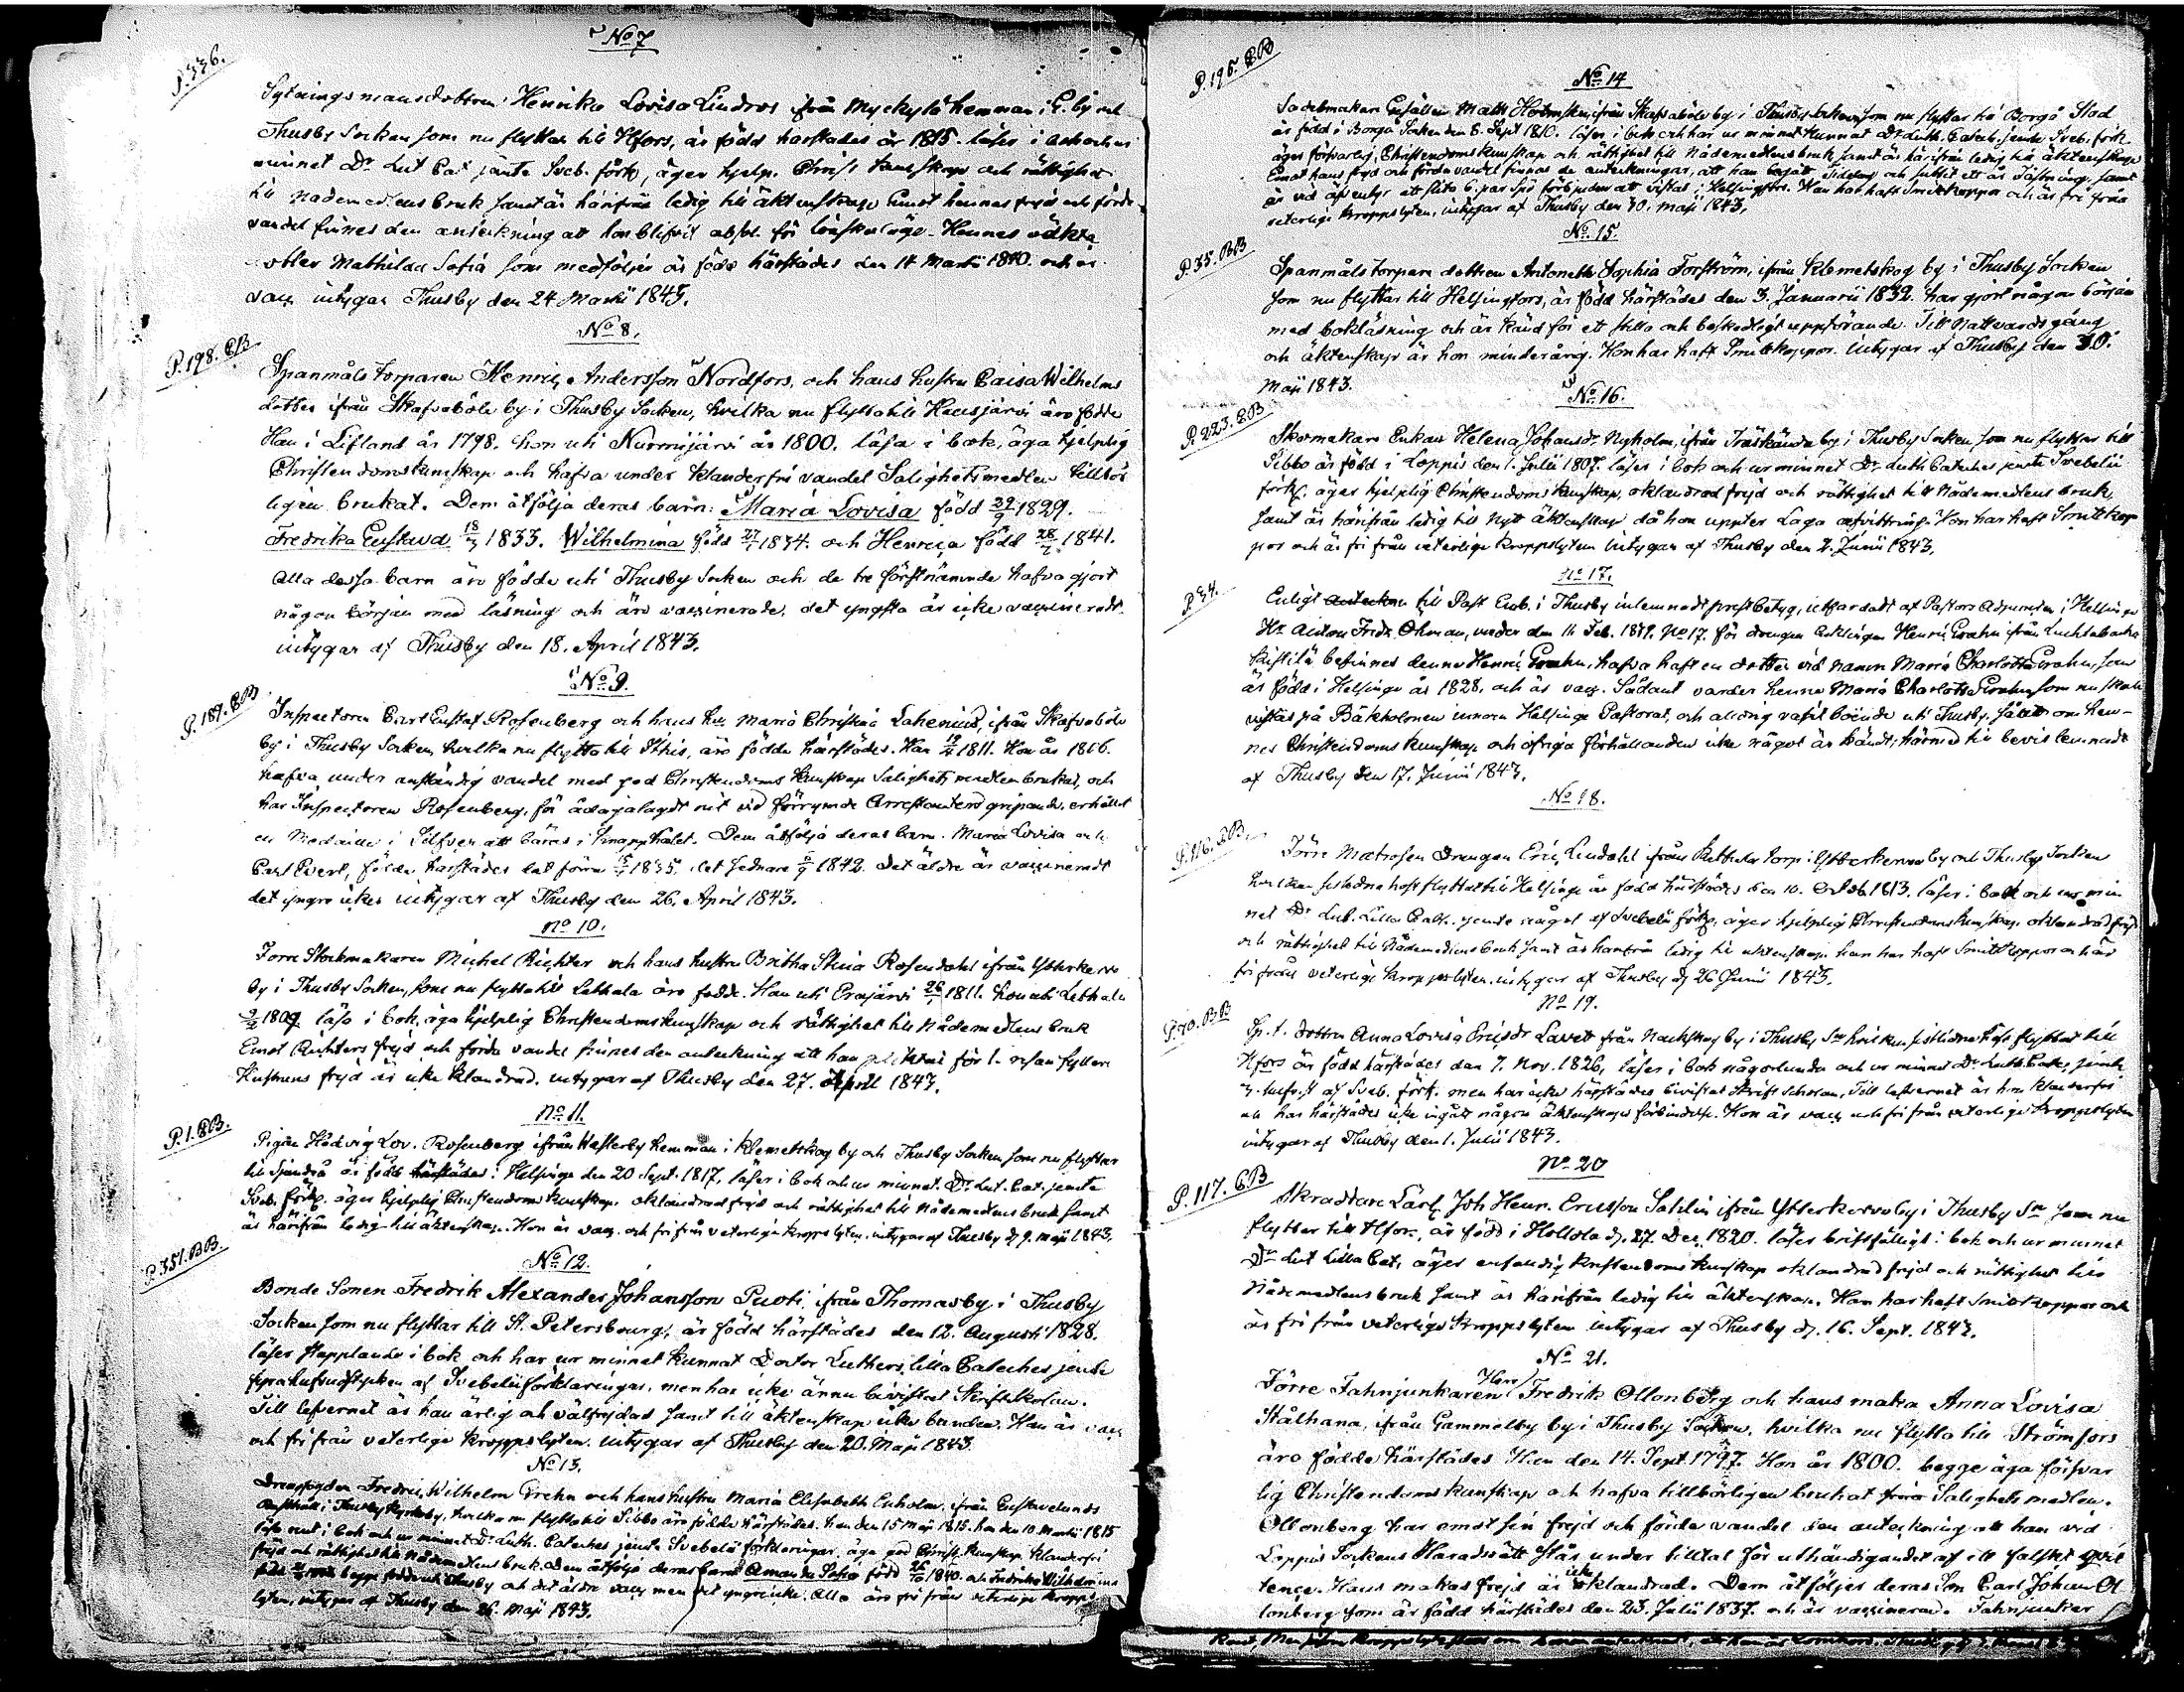 No 7
P. 336.
Sytningsmansdottren Henrika Lovisa Lindros ifrån Myckylä hemman i G. by och
Thusby Socken som nu flyttar till Hfors, är född härstädes år 1815. läser i bok och ur
minnet Dr Lut Cat jämte Sveb. förk, äger hjelp. Christ kunskap och rättighet
till Nademedlens bruk samt är härifrån ledig till äktenskap Emot hennes frejd och förda
vandel finnes den anteckning att hon blifvit absol. för lönskaläge. Hennes oäkta
dotter Mathilda Sofia som medföljer är född härstädes den 14 Martii 1840. och är
vacc intygar Thusby den 24 Martii 1843.
No 8.
P. 198. CB
Spanmåls torparen Henric Andersson Nordfors, och hans hustru Caisa Wilhelms
dotter ifrån Skafvaböle by i Thusby Socken, hvilka nu flytta till Hausjärvi äro födde
Han i Lifland år 1798. hon uti Nurmijärvi år 1800. läsa i bok, äga hjelplig
Christendomskunskap och hafva under klanderfri vandel Salighetsmedlen tillbör
ligen brukat. Dem åtfölja deras barn: Maria Lovisa född 29/9 1829.
Fredrika Gustava 18/3 1833. Wilhelmina född 27/1 1834. och Henrica född 28/2 1841.
alla dessa barn äro födde uti Thusby Socken och de tre förstnämnde hafva gjort
någon början med läsning och äro vaccinerade, det yngsta är icke vaccineradt.
intygar af Thusby den 18. April 1843.
No 9.
P. 189. CB
Inspectoren Carl Gustaf Rosenberg och hans hu Maria Christina Lahenius, ifrån Skafvaböle
by i Thusby Socken, hvilka nu flytta till Ithis, äro födde härstädes. Han 19/2 1811. Hon år 1806.
hafva under anständig vandel med god Christendoms kunskap Salighets medlen brukat, och
har Inspectoren Rosenberg, för ådagalagdt nit vid förrymde Arrestanters gripande, erhållit
en Medaille i Silfver att bäras i knapphålet. Dem åtfölja deras barn. Maria Lovisa och
Carl Evert, födde härstädes det förra 1835, det sednare 1842. det äldre är vaccineradt
det yngre icke intygar af Thusby den 26. April 1843.
No 10.
Förre Stockmakaren Michel Richter och hans hustru Britha Stina Rosendahl ifrån Ytterkervo
by i Thusby Socken, som nu flytta till Lethala äro födde. Han uti Erajärvi 26/1 1811. hon uti Lethala
1809 läsa i bok, äga hjelplig Christendomskunskap och rättighet till Nådemedlens bruk
Emot Richters frejd och förda vandel finnes den anteckning att han pliktat för 1. resan fylleri
Hustruns frejd är icke klandrad. intygar af Thusby den 27. April 1843.
No 11.
P. 1. CB.
Pigan Hedvig Lov. Rosenberg ifrån Westerby hemman i Klemetskog by och Thusby Socken som nu flyttar
till Sjundeå är född härstädes i Helsinge den 20 Sept. 1817, läser i bok och ur minnet. Dr Lut. Cat. jemte
Sveb. förkl. äger hjelplig Christendoms kunskap, oklandrad frejd och rättighet till Nådemedlens bruk samt
är härifrån ledig till äktenskap. Hon är vacc. och fri från veterliga kroppslyten. intygar af Thusby d. 9. Maji 1843.
No 12.
P. 351. BB.
Bonde Sonen Fredrik Alexander Johansson Puoti, ifrån Thomasby i Thusby
Socken som nu flyttar till St. Petersbourg, är född härstädes den 12. Augusti 1828.
läser stapplande i bok och har ur minnet kunnat Doctor Luthers lilla Cateches jemte
fyra hufvudstycken af Svebelii förklaringar, men har icke ännu bivistat Skriftskolan.
Till lefvernet är han ärlig och välfrejdad samt till äktenskap icke bunden. Han är vacc
och fri från veterliga kroppslyten. intygar af Thusby den 20. Maji 1843.
No 13.
Drengfogden Fredric Wilhelm Grehn och hans hustru Maria Elisabeth Enholm, ifrån Gustavelunds
i Thusby Kyrkoby, hvilka nu flytta till Sibbo äro födde härstädes. han den 15 Maji 1815. hon den 10 Martii 1815
läsa rent i bok och ur minnet Dr Luth. Cateches jemte Svebelii förklaringar, äga god Christ. kunskap. klanderfri
frejd och rättighet till Nådemedlens bruk. Dem åtfölja deras barn Amanda Sofia född 26/10 1840. och Fredrika Wilhelmina
född begge födde uti Thusby och det äldre vacc men det yngre icke. Alla äro fri från veterliga kropps
lyten, intygar af Thusby den 26. Maji 1843.
No 14
P. 195. CB
Sadelmakare Gesällen Matts Holmsten, ifrån Skafvaböle by i Thusby Socken, som nu flyttar till Borgå Stad
är född i Borgå Socken den 8. Sept 1810. läser i bok och har ur minnet kunnat Dr Luth. Catech. jemte Sveb. förk
äger försvarlig Christendomskunskap och rättighet till Nådemedlens bruk samt är härifrån ledig till äktenskap
Emot hans frejd och förda vandel finnas de anteckningar, att han begått tidelag och suttit ett år å fästning, samt
är vid äfventyr ett fäste 6. par spö förbjuden att vistas i Helsingfors. Han har haft Smittkoppor och är fri från
veterliga kroppslyten, intygar af Thusby den 30. Maji 1843.
No 15.
P. 35. BB
Spanmåls torpare dottren Antonetta Sophia Forsström, ifrån Klemetskog by i Thusby Socken
som nu flyttar till Helsingfors, är född härstädes den 3. Januarii 1832. har gjort någon början
med bokläsning och är känd för ett stilla och beskedligt uppförande. Till Nattvardsgång
och äktenskap är hon minderårig. Hon har haft Smittkoppor. intygar af Thusby den 30.
Maji 1843.
No 16.
P. 223. CB
Skomakare Enkan Helena Johansdr. Nyholm, ifrån Träskända by i Thusby Socken som nu flyttar till
Sibbo är född i Loppis den 1. Julii 1807. läser i bok och ur minnet Dr Luth Cateches jemte Svebelii
förkl. äger hjelplig Christendoms kunskap, oklandrad frejd och rättighet till Nådemedlens bruk,
samt är härifrån ledig till nytt äktenskap då hon uppter Laga afvittring. Hon har haft Smittkop
por och är fri från veterliga kroppslyten intygar af Thusby den 2. Junii 1843.
No 17.
P. 34.
Enligt till Past Emb. i Thusby inlemnadt prestbetyg, utfärdadt af Pastors Adjuncten i Helsinge
Hr Anton Fredr. Öhman, under den 11 Feb. 1849. No 17. för drengen Henric Grahn ifrån Luchtabacka
befinnes denne Henric Grahn, hafva haft en dotter vid namn Maria Charlotta Grahn, som
är född i Helsinge år 1828, och är vacc. Sådant varder henne Maria Charlotta Grahn som nu skall
vistas på Bäkholmen innom Helsinge Pastorat, och aldrig varit boende uti Thusby, om hen-
nes Christendoms kunskap och öfriga förhållanden icke något är kändt; härmed till bevis lemnadt
af Thusby den 17. Junii 1843.
No 18.
P. 116. CB.
Förre Matrosen Drengen Eric Lindahl ifrån torp i Ytterkervo by och Thusby Socken
hvilken sistledne höst flyttat till Helsinge är född härstädes den 10. Octob 1813. läser i bok och ur min
net Dr Lut. Lilla Cath. jemte något af Svebelii förkl, äger hjelplig Christendomskunskap, oklandrad frejd
och rättighet till Nådemedlens bruk samt är härifrån ledig till äktenskap. han har haft Smittkoppor och är
fri från veterliga kroppslyten. intygar af Thusby d. 26 Junii 1843.
No 19.
P. 70. BB
Sp. t. dottren Anna Lovisa Ericsdr Lavett från Nackskog by i Thusby Sn hvilken sistledne höst flyttat till
Hfors är född härstädes den 7. Nov. 1826, läser i bok någorlunda och ur minnet Dr Luth. Cate, jemte
3. hufv.st af Sveb. förk. men har icke härstädes bivistat Skriftscholan, Till lefvernet är hon klanderfri
och har härstädes icke ingått någon äktenskaps förbindelse. Hon är vacc och fri från veterliga kroppslyten
intygar af Thusby den 1. Julii 1843.
No 20
P. 117. CB
Skraddare Lärl. Joh Henr. Ericsson Sahlin ifrån Ytterkervo by i Thusby Sn som nu
flyttar till Hfors, är född i Hollola d. 27. Dec. 1820. läser bristfälligt i bok och ur minnet
Dr Lut Lilla Cat, äger enfaldig kristendoms kunskap oklandrad frejd och rättighet till
Nådemedlens bruk samt är härifrån ledig till äktenskap. Han har haft Smittkoppor och
är fri från veterliga kroppslyten intygar af Thusby d. 16. Sept. 1843.
No 21.
Förre Fahnjunkaren Herr Fredrik Ollonberg och hans maka Anna Lovisa
Stålhana, ifrån Gammelby by i Thusby Socken, hvilka nu flytta till Strömfors
äro födde härstädes Han den 14. Sept. 1797. Hon år 1800. begge äga försvar
lig Christendoms kunskap och hafva tillbörligen brukat Salighets medlen.
Ollonberg har emot sin frejd och förde vandel den anteckning att han vid
Loppis Sockens Häradsrätt står under tilltal för uthändigandet af ett falskt qvit
tence. Hans makas frejd är icke klandrad. Dem åtföljer deras Son Carl Johan Ol
lonberg som är född härstädes den 23. Julii 1837. och är vaccinerad. Fahnjunkar